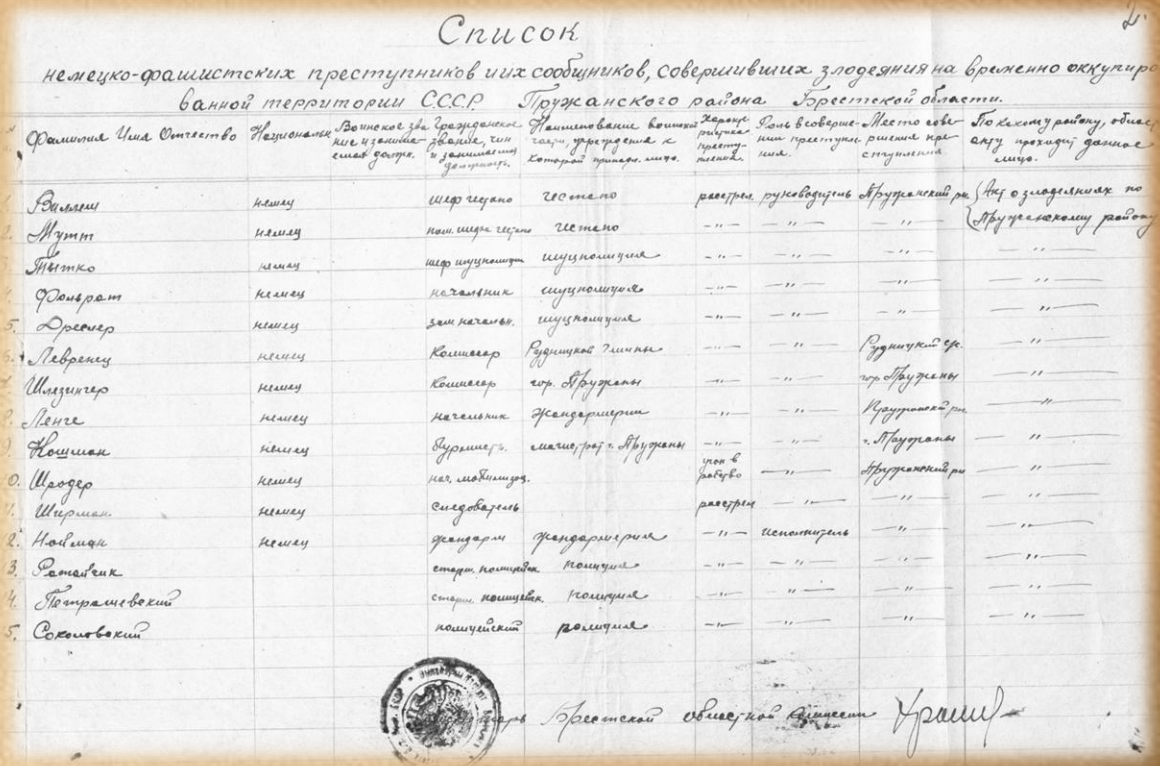 2.
Список
немецко-фашистских преступников и их сообщников, совершивших злодеяния на временно оккупиро
ванной территории СССР Пружанского района Брестской области.
Фамилия Имя Отчество Националь Воинское зва ние и занима емая должн. Гражданское звание, чин и занимаемая должность. Наименование воинской части, учреждения к которой принадл. лицо. Характе ристика преступ ления. Роль в соверше нии преступле ния. Место сове ршения пре ступления По какому району, област акту проходит данное лицо.
Виллеш немец шеф гестапо гестапо расстрел руководитель Пружанский ра Акт о злодеяниях по
2. Мутт немец пом. шефа гестапо гестапо -"- -"- -"- Пружанскому району
Тытко немец шеф шуцполиции шуцполиция -"- -"- -"- -"-
Фольрат немец начальник шуцполиция -"- -"- -"- -"-
5. Дреслер немец зам начальн. шуцполиция -"- -"- -"- -"-
Левренец немец Комиссар Рудницкой Гмины -"- -"- Рудницкий -"-
Шлезингер немец Комиссар гор. Пружаны -"- -"- гор Пружаны -"-
Ленге немец начальник жандармерии -"- -"- Пружанский ра -"-
9. Кошман немец бургомистр. магистрат г. Пружаны -"- -"- г. Пружаны -"-
0. Шродер немец нач. мобилизац. угон в рабство -"- Пружанский ра -"-
Ширман немец следователь расстрел -"- -"- -"-
2. Найман немец жандарм жандармерия -"- исполнитель -"- -"-
3. Ратайчик старш. полицейск полиция -"- -"- -"- -"-
4. Петрашевский старш. полицейск. полиция -"- -"- -"- -"-
5. Соколовский полицейский полиция -"- -"- -"- -"-
Брестской областной комиссии